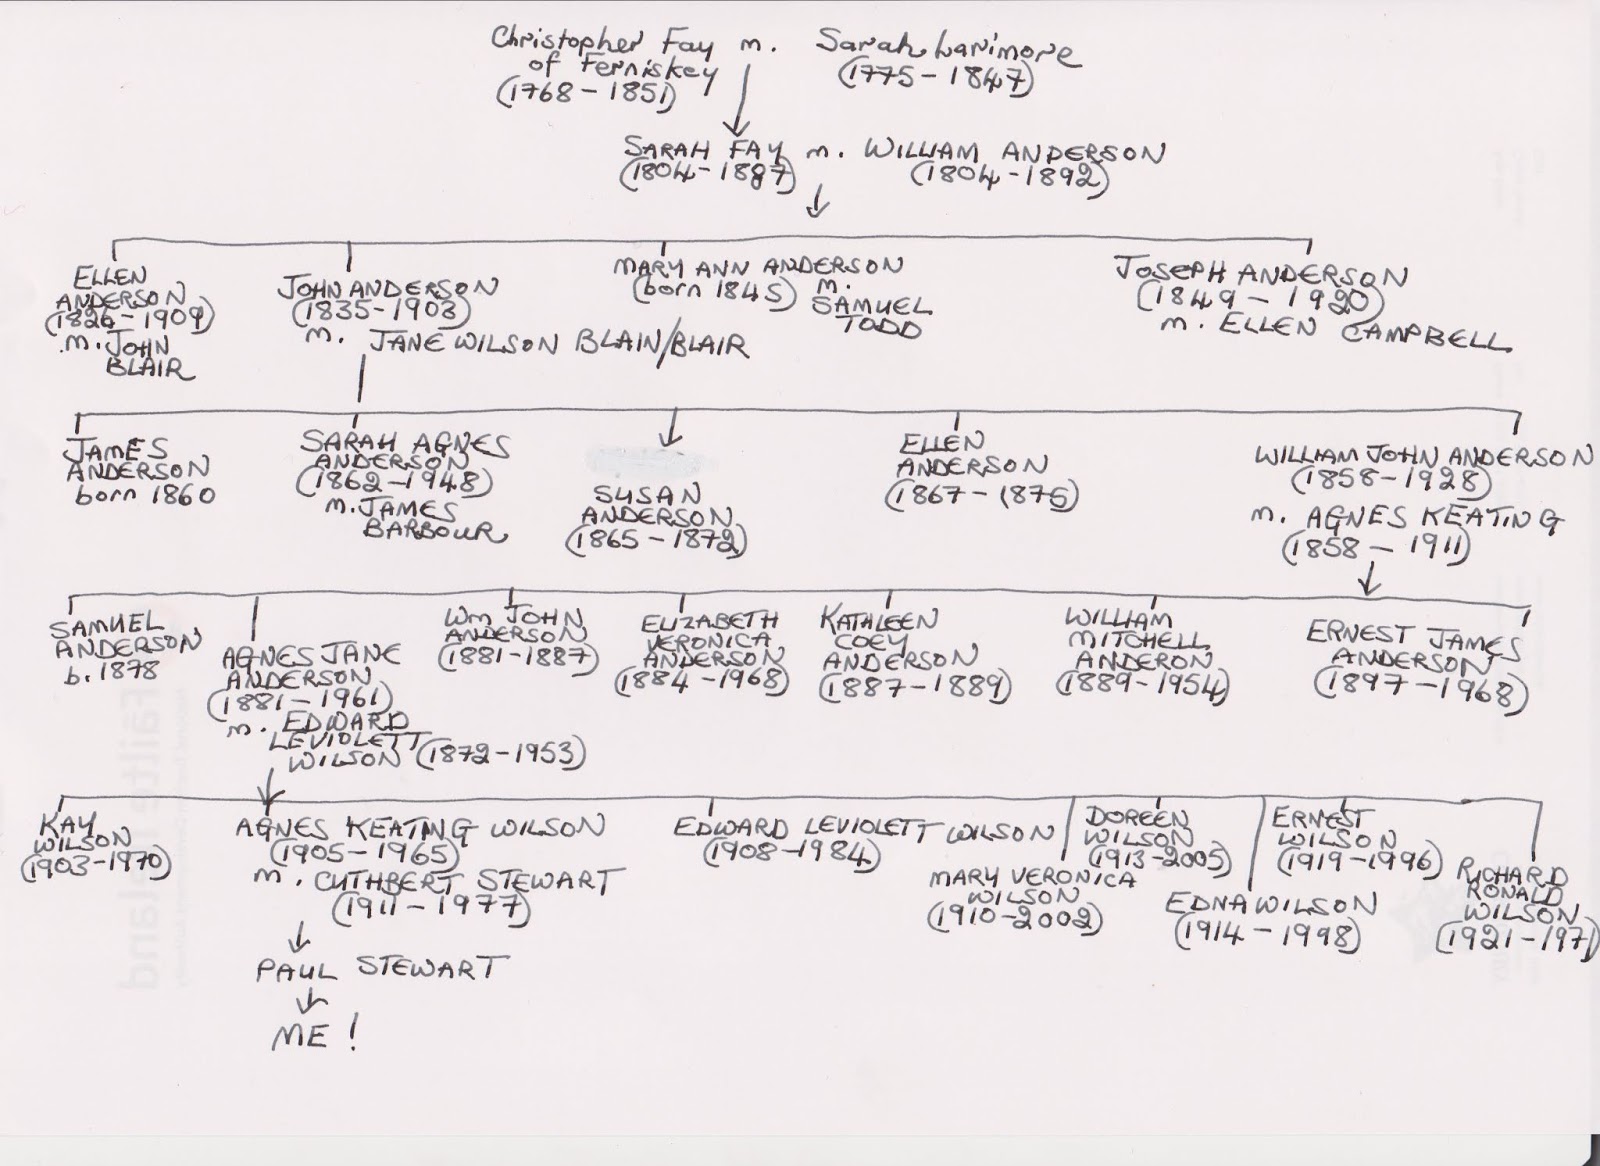 Christopher Fay m. Sarah Larimore
of Ferniskey
(1768-1851) (1775-1847)
SARAH FAY m. WILLIAM ANDERSON
(1804-1887) (1804-1892)
ELLEN
ANDERSON
(1826-1909)
m. JOHN
BLAIR
JOHN ANDERSON
(1835-1903)
m. JANE WILSON BLAIN/BLAIR
MARY ANN ANDERSON
(born 1845) m.
SAMUEL
TODD
JOSEPH ANDERSON
(1849-1920)
m. ELLEN CAMPBELL
JAMES
ANDERSON
born 1860
SARAH AGNES
ANDERSON
(1862-1948)
m. JAMES
BARBOUR
SUSAN
ANDERSON
(1865-1872)
ELLEN
ANDERSON
(1867-1875)
WILLIAM JOHN ANDERSON
(1858-1928)
m. AGNES KEATING
(1858-1911)
SAMUEL
ANDERSON
b. 1878
AGNES JANE
ANDERSON
(1881-1961)
m. EDWARD
LEVIOLETT
WILSON (1872-1953)
Wm JOHN
ANDERSON
(1881-1887)
ELIZABETH
VERONICA
ANDERSON
(1884-1968)
KATHLEEN
COEY
ANDERSON
(1887-1889)
WILLIAM
MITCHELL
ANDERON
(1889-1954)
ERNEST JAMES
ANDERSON
(1897-1968)
KAY
WILSON
(1903-1970)
AGNES KEATING WILSON
(1905-1965)
m. CUTHBERT STEWART
(1911-1977)
EDWARD LEVIOLETT WILSON
(1908-1984)
MARY VERONICA
WILSON
(1910-2002)
DOREEN
WILSON
(1913-2005)
EDNA WILSON
(1914-1998)
ERNEST
WILSON
(1919-1996)
RICHARD
RONALD
WILSON
(1921-1971
PAUL STEWART
ME!